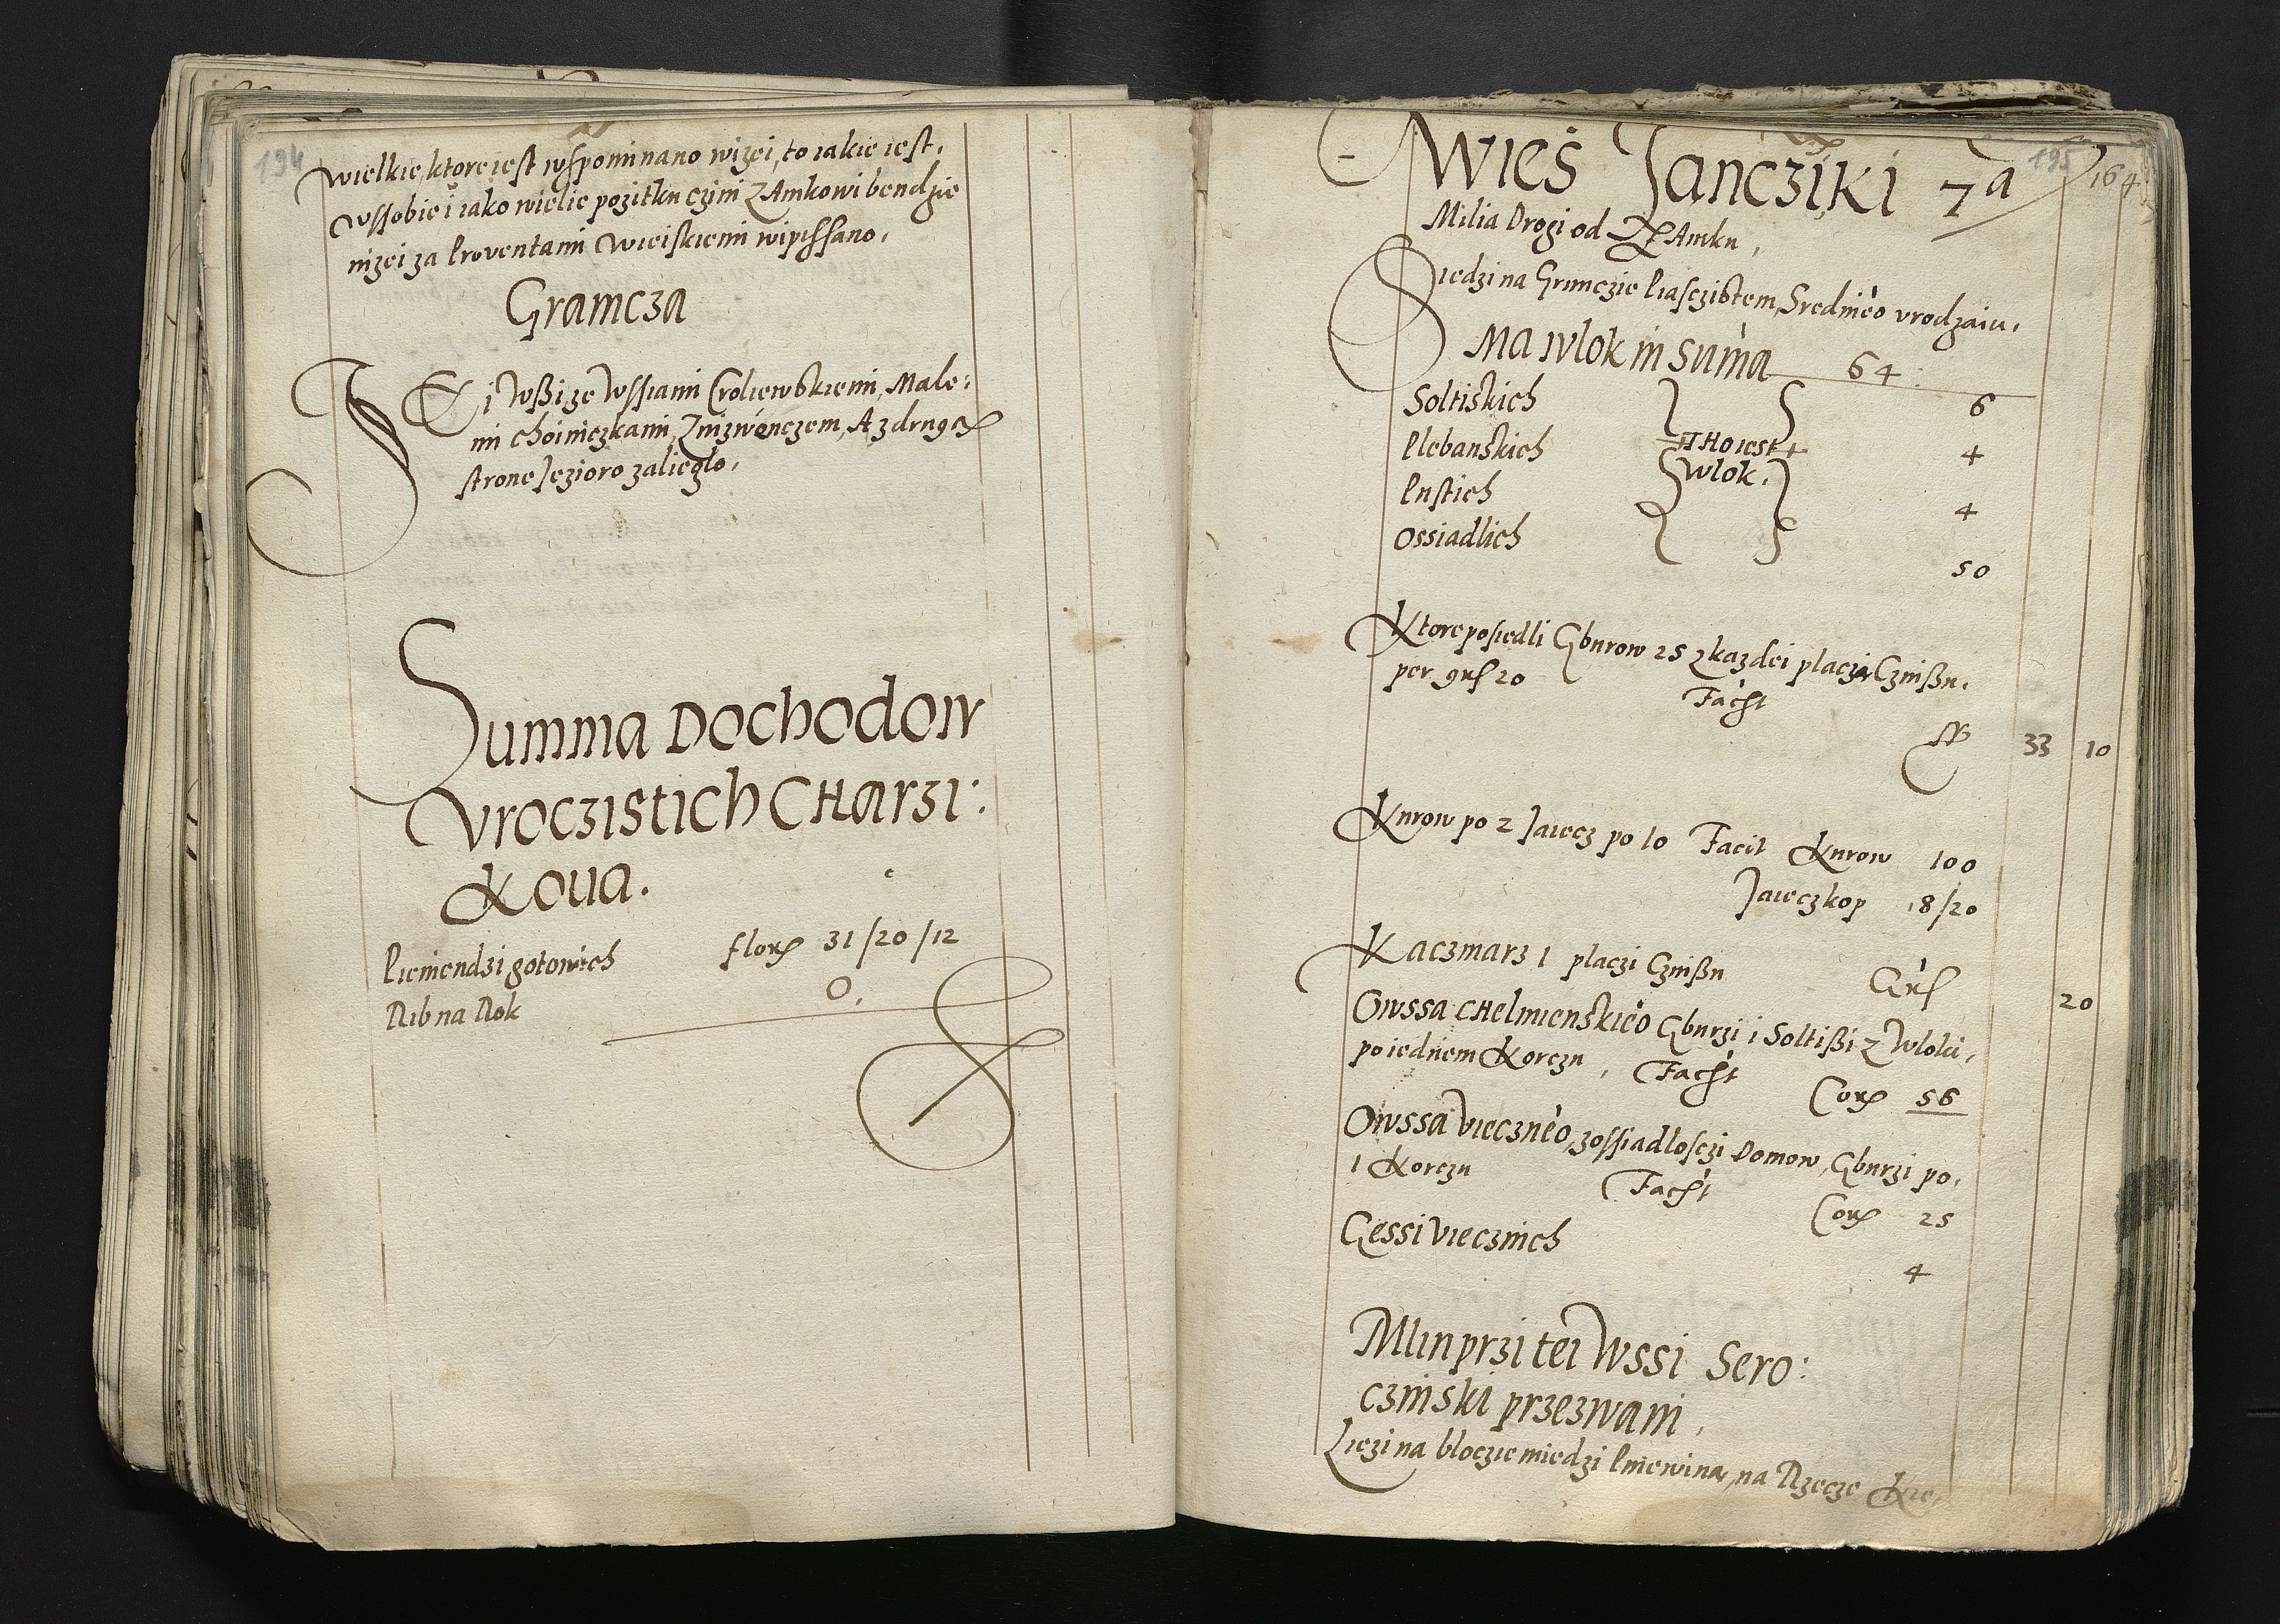 194
wielkie, ktore iest wspominano wizei, to iakie iest,
w ssobie i iako wielie pozitku czini ZAmkowi bendzie
nizei za Proventami Wieiskiemi wipissano,
Gramcza
TEi Wßi ze Wssiami Croliewskiemi, Male:
mi choiniczkami, Zmzwenczem, A z drugą
strone Jezioro zaliegło,
Summa Dochodow
Vroczistich CHarzi:
Kova.
Pieniendzi gotowich florx 31/20/12
Rib na Rok 0,
195
164
Wieś Janczíki 7a
Milia Drogi od ZAmku,
Siedzi na Grunczie Piasczistem, Srednieo vrodzaiu,
Ma Wlok in Suma 64:
Soltiskich 6
Plebanskich THo iest 4
Pustich Wlok. 4
Ossiadlich 50
Ktore posiedli Gburow 25 z kazdei płaczą Czinßu,
per grs 20 Facit
33 10
Kurow po 2 Jaiecz po 10 Facit Kurow 100
Jaiecz kop 8/20
Kaczmarz 1 placzi Czinßu Grs 20
Owssa CHelmienskieo Gburzi i Soltißi z Wloki,
po iednem Korczu, Facit Corx 56
Owssa Vieczneo, z ossiadlosczi Domow, Gburzi po,
1 Korczu Facit Corx 25
Gessi Viecznich 4
Mlin przi tei Wssi Sero:
czinski przezwani,
Liezi na bloczie miedzi Pniewiną, na Rzecze Kie,